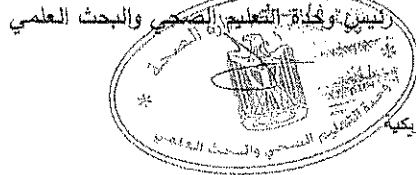 رئيس وحدة التعليم الصحي والبحث العلمي
الصحة
وحدة التعليم الصحي والبحث العلمي
يكية